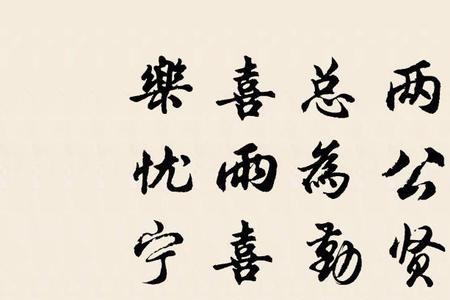 两公贤
总為勤
喜雨喜
樂忧宁